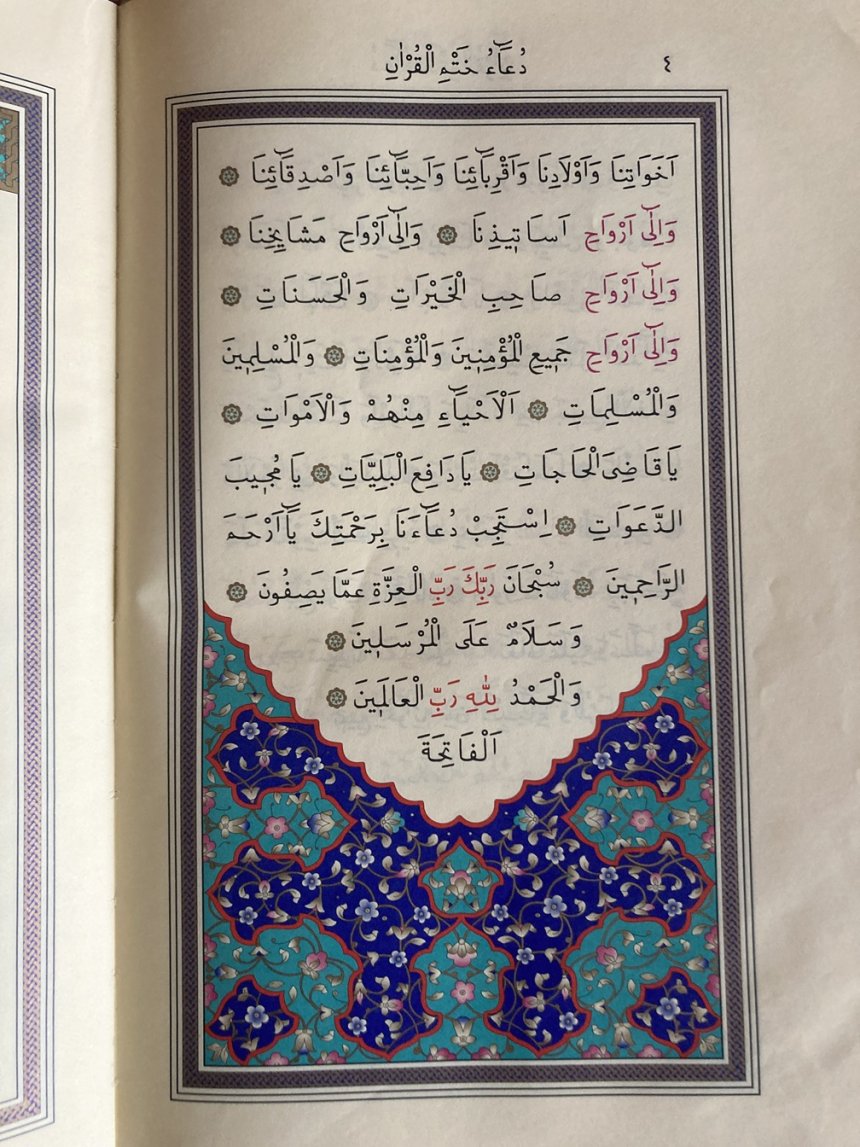 دُعَٓاءُ خَتْمِ الْقُرْاٰنِ ٤
اَخَوَاتِنَا وَاَوْلَادِنَا وَاَقْرِبَٓائِنَا وَاَحِبَّٓائِنَا وَاَصْدِقَٓائِنَا ۞
وَاِلٰٓى اَرْوَاحِ اَسَات۪يذِنَا ۞ وَاِلٰٓى اَرْوَاحِ مَشَايِخِنَا ۞
وَاِلٰٓى اَرْوَاحِ صَاحِبِ الْخَيْرَاتِ وَالْحَسَنَاتِ ۞
وَاِلٰٓى اَرْوَاحِ جَم۪يعِ الْمُؤْمِن۪ينَ وَالْمُؤْمِنَاتِ ۞ وَالْمُسْلِم۪ينَ
وَالْمُسْلِمَاتِ ۞ اَلْاَحْيَٓاءِ مِنْهُمْ وَالْاَمْوَاتِ ۞
يَا قَاضِىَ الْحَاجَاتِ ۞ يَا دَافِعَ الْبَلِيَّاتِ ۞ يَا مُج۪يبَ
الدَّعَوَاتِ ۞ اِسْتَجِبْ دُعَٓاءَنَا بِرَحْمَتِكَ يَٓا اَرْحَمَ
الرَّاحِم۪ينَ ۞ سُبْحَانَ رَبِّكَ رَبِّ الْعِزَّةِ عَمَّا يَصِفُونَ ۞
وَسَلَامٌ عَلَى الْمُرْسَل۪ينَ ۞
وَالْحَمْدُ لِلّٰهِ رَبِّ الْعَالَم۪ينَ ۞
اَلْفَاتِحَةَ